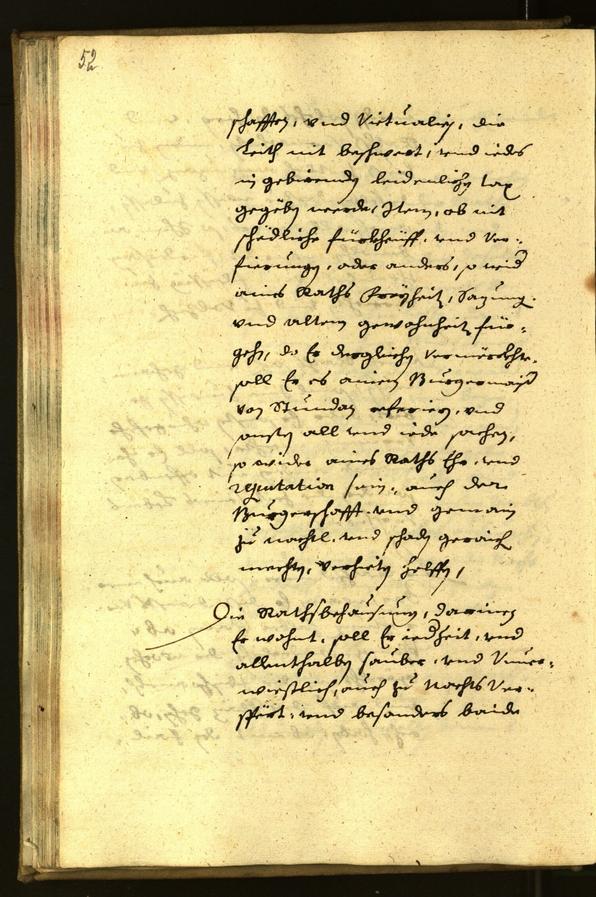 52
schafften, vnd Victualien, die
Leith nit beschwert, vnd iedes
in gebirenden leidenlichen tax
gegeben werde, Item, ob nit
schedliche fürkheüff, vnd Ver-
fierungen, oder anders, so wid
aines Raths Freyheit, Sazung
vnd altem gewohnheit, für-
gehe, da Er dergleichen vermörckhte,
soll Er es ainem Burgermaist
von Stundan referiern, vnd
sonsten all vnd iede sachen,
so wider aines Raths Ehr, vnd
reputation sein, auch der
Burgerschafft vnd gemain
zu nachtl. vnd schaden geraich
mechten, verhieten helffen,
Die Rathsbehausung, darinen
Er wohnt, soll Er iedzeit, vnd
allenthalben sauber, vnd Vnuer-
wiestlich, auch zu Nachts Ver-
spört, vnd besonders baide